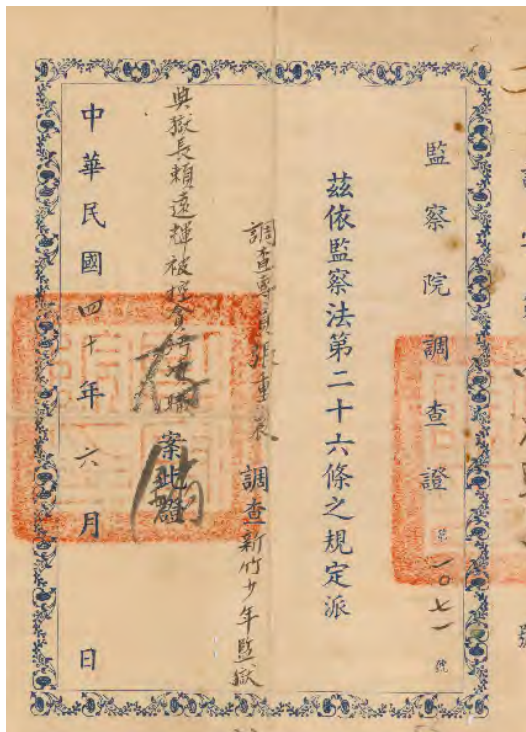 監察院調查證第一〇七一號
茲依監察法第二十六條之規定派
調查專員張重 調查新竹少年監獄
典獄長賴遠輝被控貪污瀆職案此證
中華民國四十年六月 日